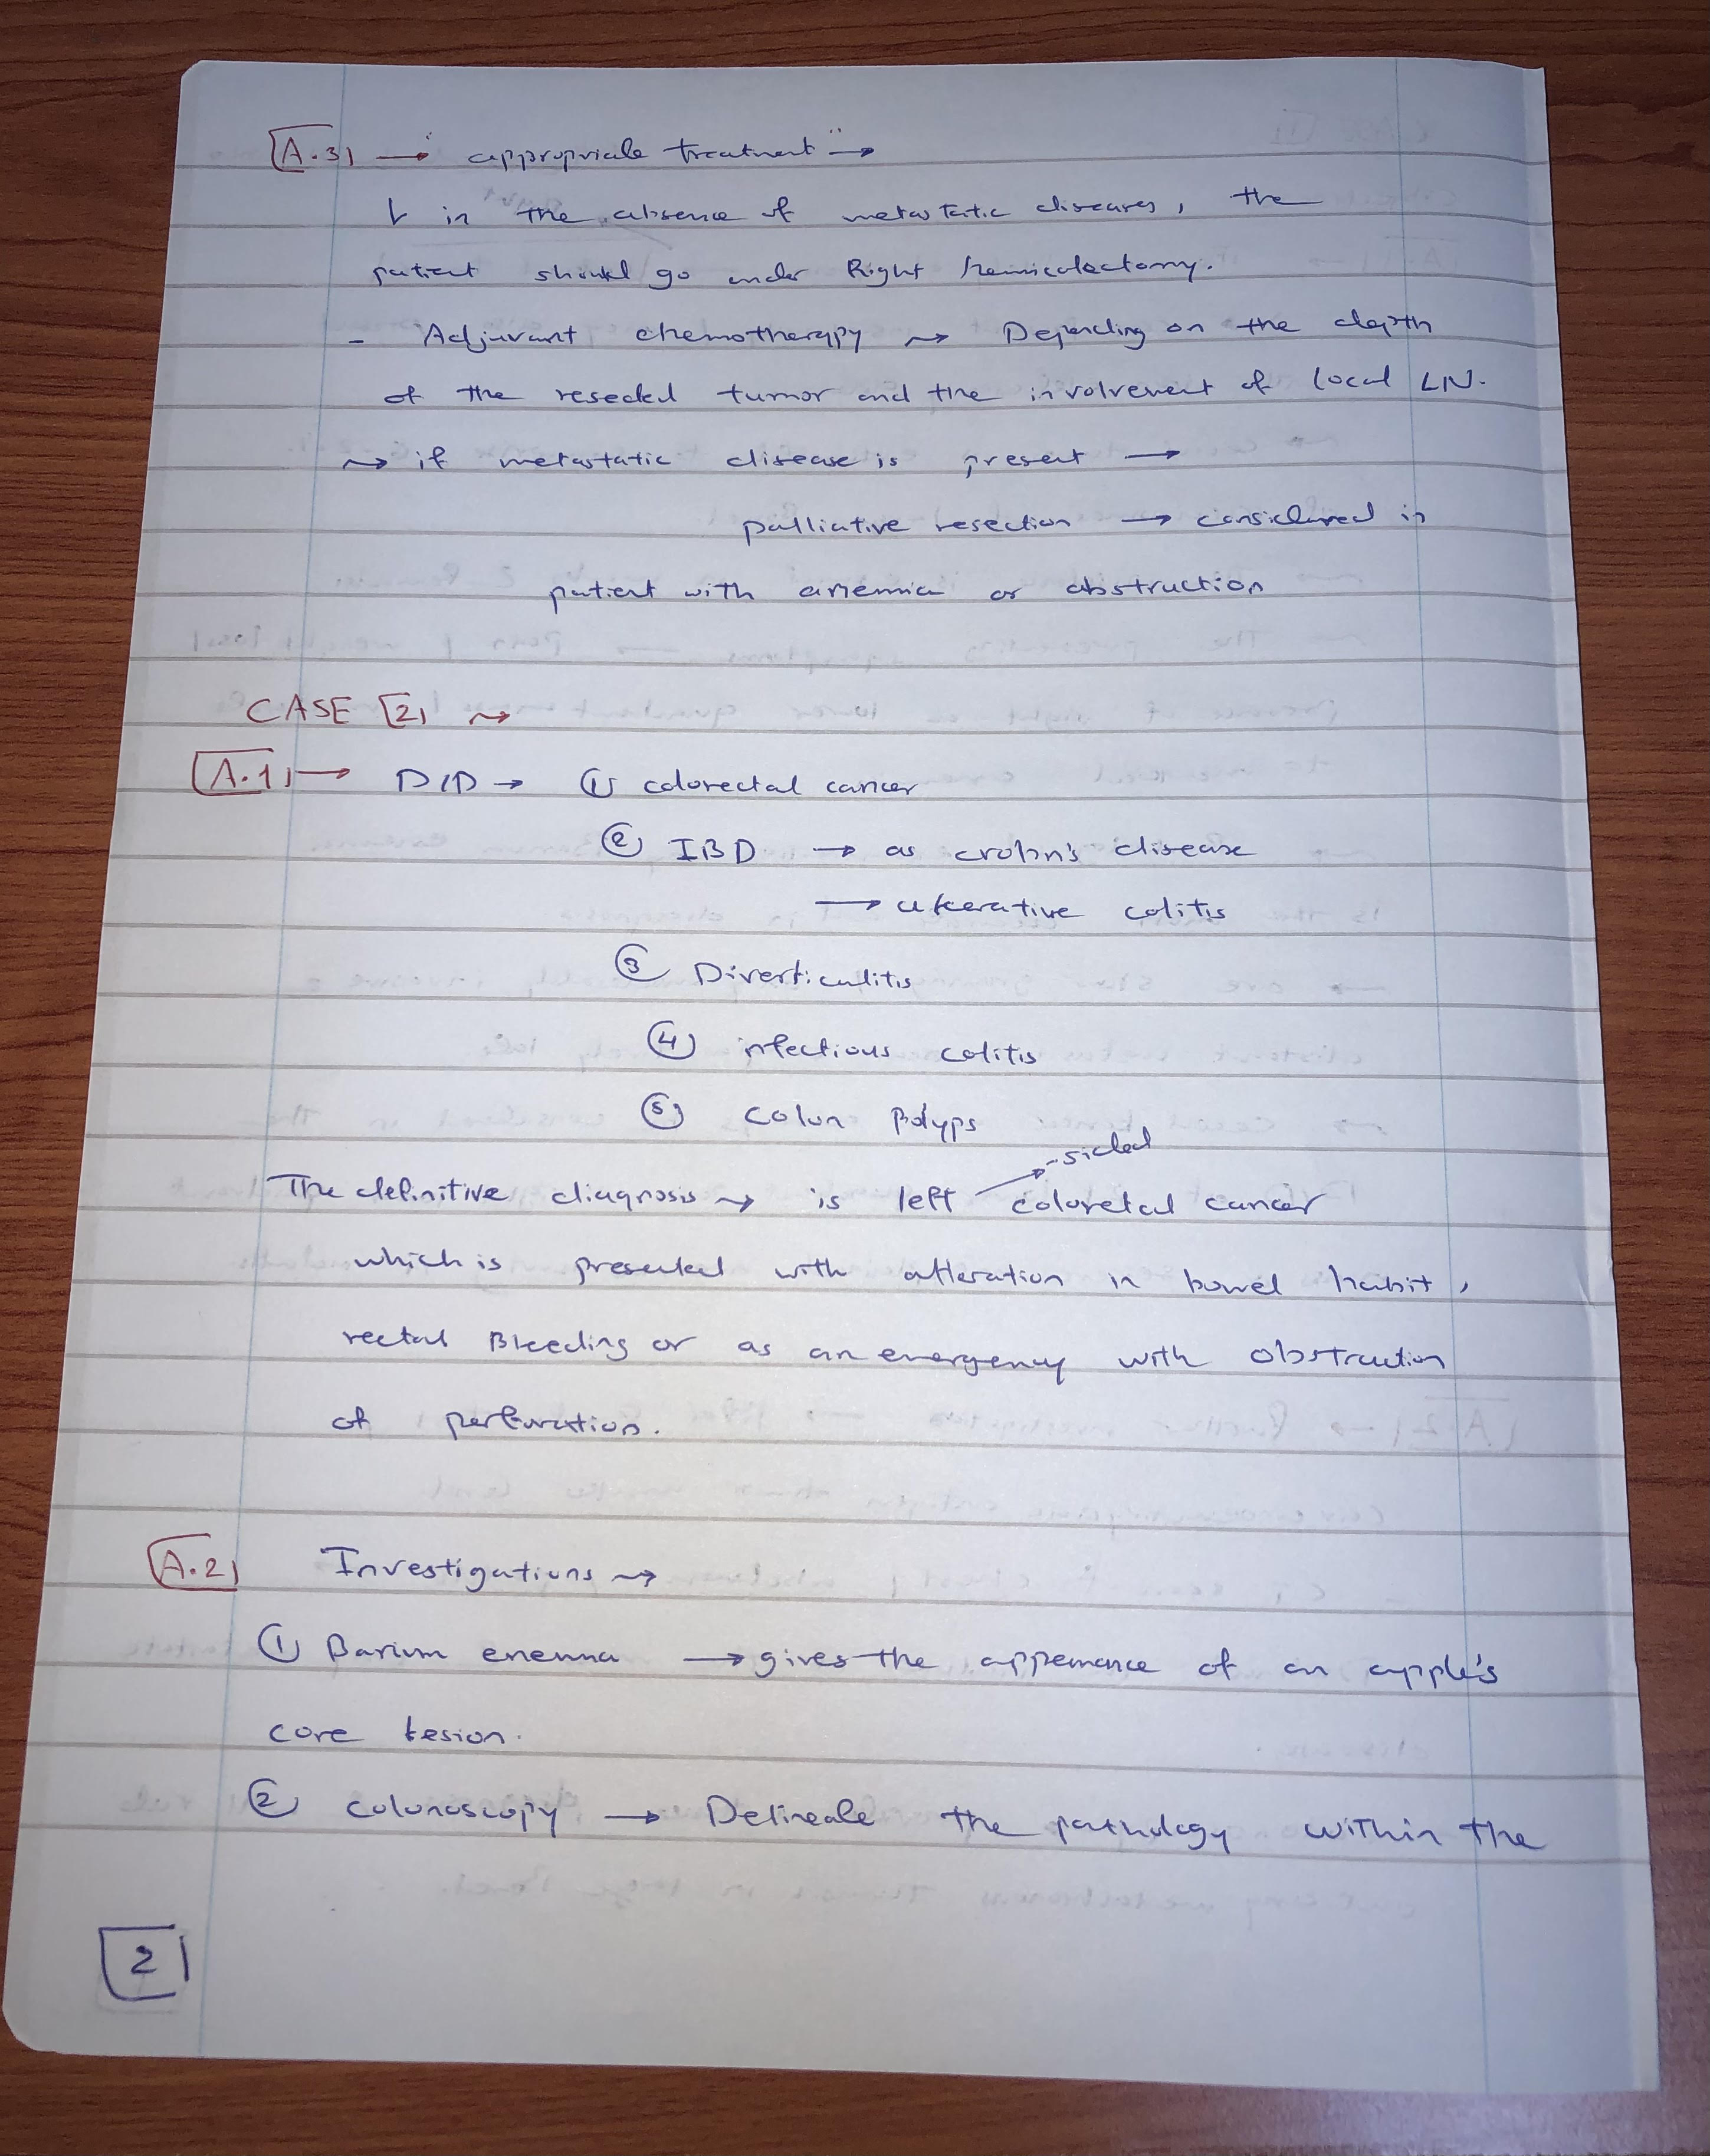 A.3 → "appropriate treatment" →
↳ in the absence of metastatic diseases, the
patient should go under Right hemicolectomy.
- Adjuvant chemotherapy ⇝ Depending on the depth
of the resected tumor and the involvement of local LN.
⇝ if metastatic disease is present →
palliative resection → considered in
patient with anemia or obstruction
CASE [2] ⇝
A.1 → D/D → ① colorectal cancer
② IBD → as crohn's disease
→ ulcerative colitis
③ Diverticulitis
④ infectious colitis
⑤ colon Polyps
-sided
The definitive diagnosis ⇝ is left coloretal cancer
which is presented with alteration in bowel habit,
rectal Bleeding or as an emergency with obstruction
of perforation.
A.2 Investigations ⇝
① Barium enema → gives the appearance of an apple's
core lesion.
② colonoscopy → Delineate the pathology within the
2